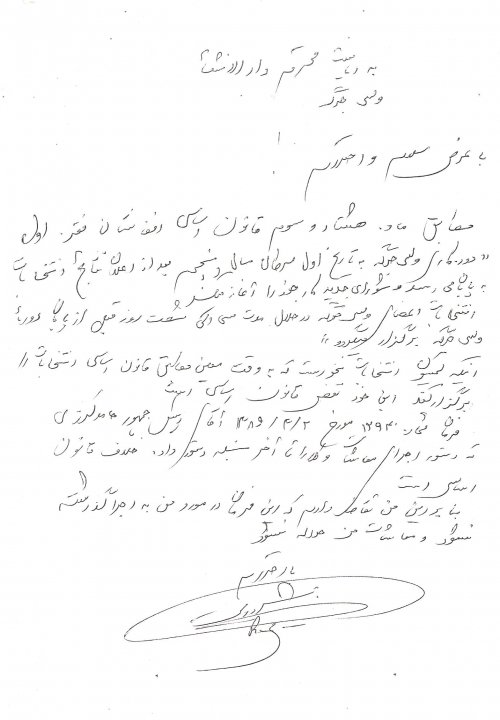 به ریاست محترم دارالانشاء
ولسی جرگه
با عرض سلام و احترام !
مطابق ماده هشتاد و سوم قانون اساسی افغانستان فقره اول
"دوره کاری ولسی جرگه به تاریخ اول سرطان سال پنجم بعد از اعلان نتایج انتخابات
به پایان می رسد و شورای جدید به کار آغاز
انتخابات اعضای ولسی جرگه در خلال مدت سی الی شصت روز قبل از پایان دوره
ولسی جرگه برگزار میگردد"
آنکه کمیسیون انتخابات نخواست که به وقت معین مطابق قانون اساسی انتخابات را
برگزار کند این خود نقض قانون اساسی است
فرمان شماره ۱۲۹۴۰ مورخ ۱۳۸۹/۴/۲ آقای رئیس جمهور حامد کرزی
که دستور اجرای معاشات وکلا را تا آخر سنبله دستور داد، خلاف قانون
اساسی است
بنابرین من تقاضا دارم که این فرمان در مورد من به اجرا گذاشته
نشود و معاشات من حواله نشود
با احترام